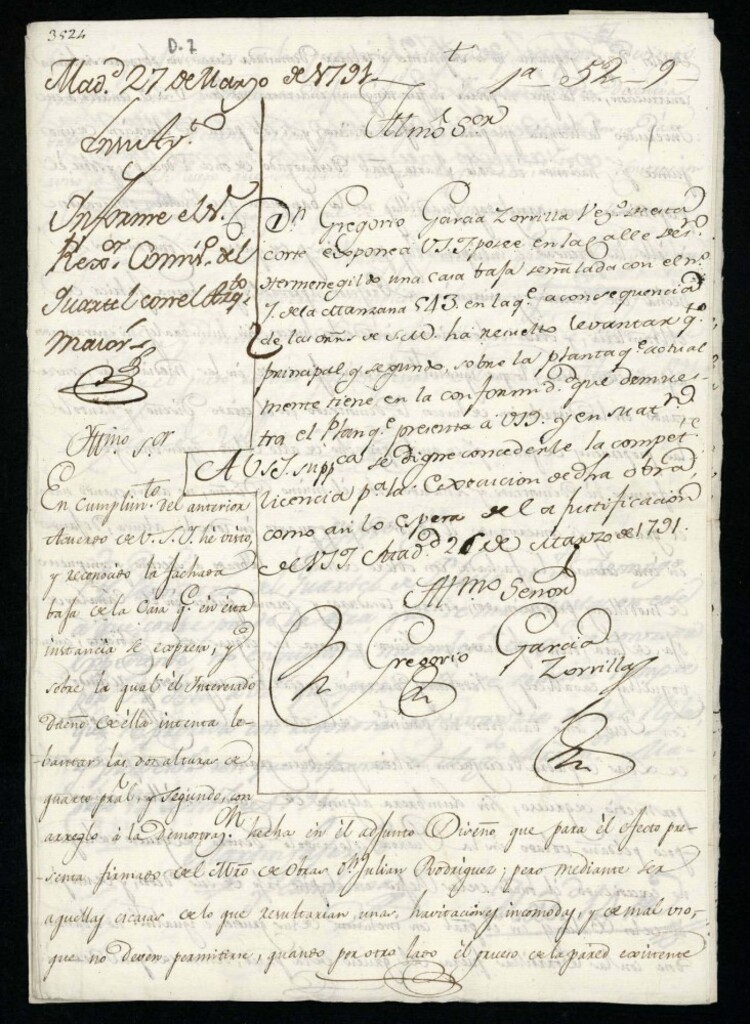 3524
D.7
1ª - 52 - 9 -
Mad.d 27 de Marzo de 1791
Informe el
Rexor Comis.º del
Quartel con el Arq.to
maior
Illmo Sor
Dn Gregorio Garcia Zorrilla Vez.º de esta
corte expone a VSI. posee en la calle de Sn
Hermenegildo una casa baja señalada con el nº
7. de la Manzana 543 en la q.e a consequencia
de las ords de S.M. ha resuelto levantar qto
principal, y segundo, sobre la planta q.e actual
mente tiene en la conformid.d que demues-
tra el Plan q.e presenta a VSI. y en su at.n
A VSI. suppca se digne concederle la compet.te
licencia p.a la execucion de dha obra,
como asi lo espera de la justificacion
de VSI. Mad.d 26 de Marzo de 1791.
Illmo Señor
Gregorio Garcia
Zorrilla
Illmo Sor
En cumplim.to del anterior
Acuerdo de V.S.I. he visto,
y reconocido la fachada
baja de la Casa q.e en esta
instancia se expresa, y
sobre la qual el Interesado
Dueño de ella intenta le-
bantar las dos alturas de
quarto pral, y segundo, con
arreglo à la demostraz.on hecha en el adjunto Diseño que para él efecto pre-
senta firmado del Mro de Obras Dn Julian Rodriguez; pero mediante ser
aquellas escasas de lo que resultarian unas havitaciones incomodas, y de mal uso,
que no deven permitirse, quando por otro lado el grueso de la pared existente